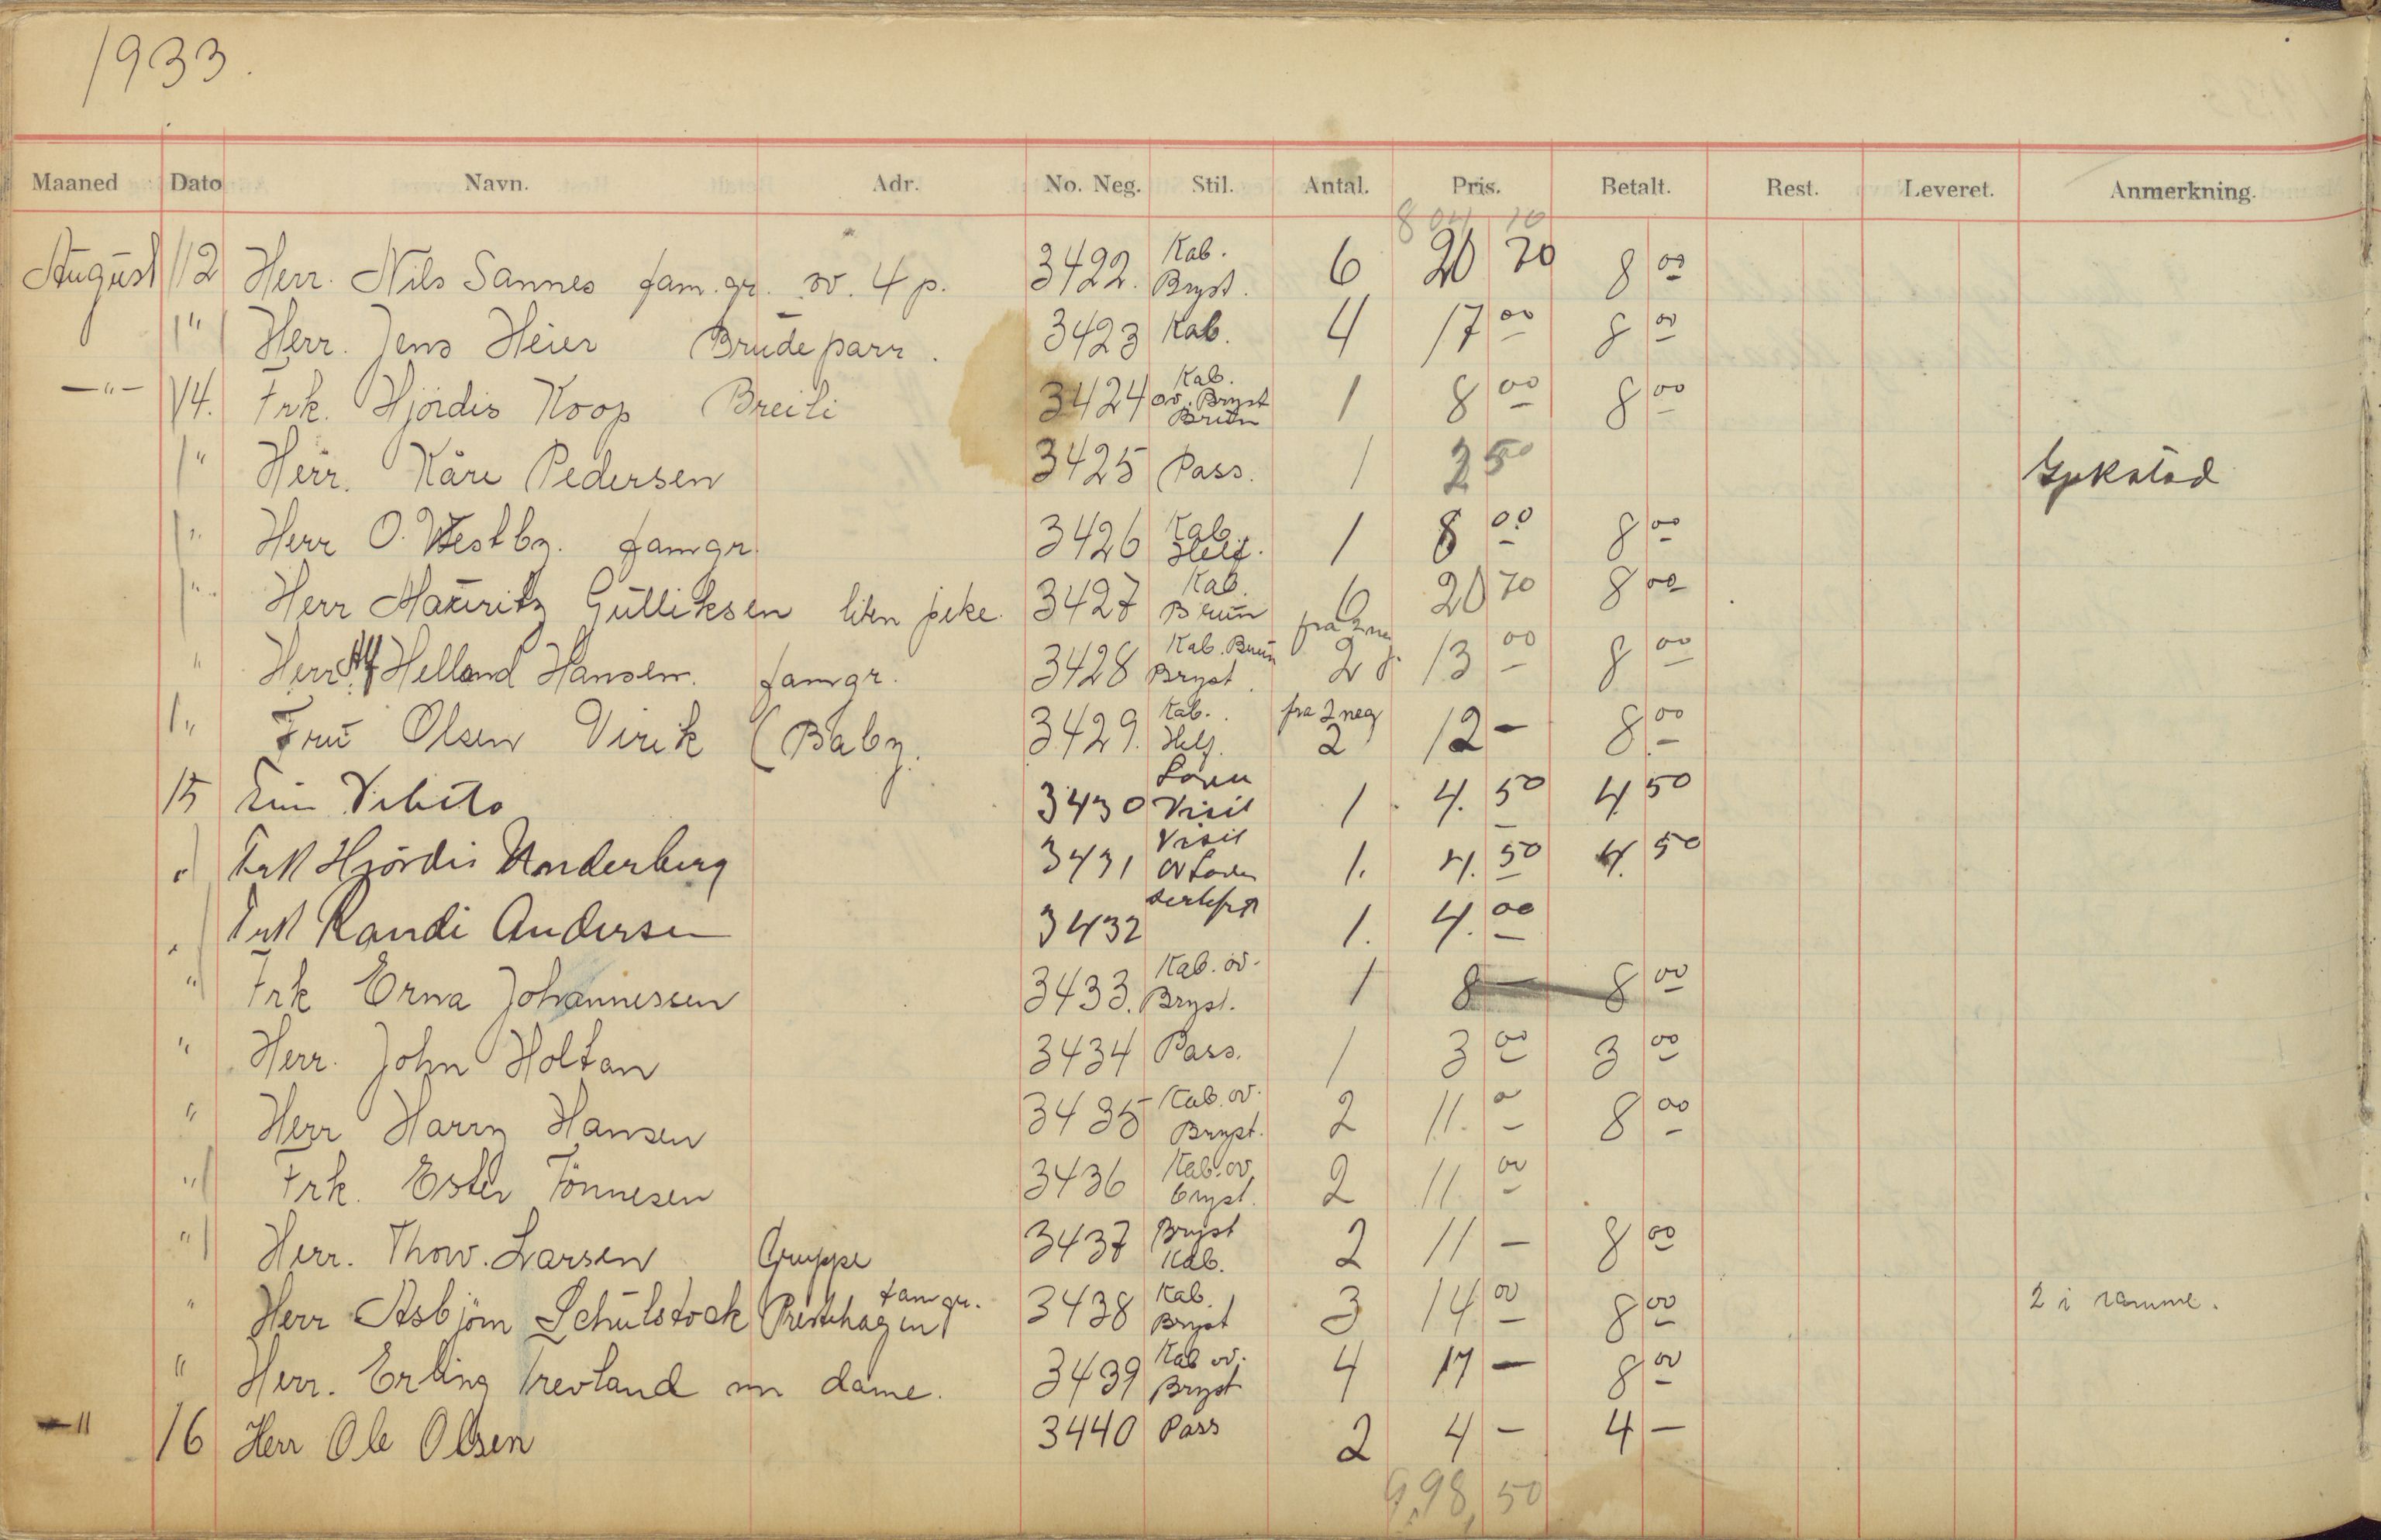 1933.
Maaned Dato Navn. Adr. No. Neg. Stil. Antal. Pris. Betalt. Rest. Leveret. Anmerkning.
804 10
August 12 Herr. Nils Sannes fam.gr. ov. 4 p. 3422. Kab. Bryst. 6 20 70 8 00
" Herr. Jens Heier Brudeparr. 3423 Kab. 4 17 00 8 00
—"— 14. Frk. Hjördis Koop Breili 3424 Kab. ov. Bryst Brun 1 8 00 8 00
" Herr. Kåre Pedersen 3425 Pass. 1 2 50
" Herr O. Westby. famgr. 3426 Kab. Helf. 1 8 00 8 00
" Herr Mauritz Gulliksen liten pike. 3427 Kab. Brun 6 20 70 8 00
" Herr Alf Helland Hansen. famgr. 3428 Kab. Brun Bryst. fra 2 neg 2 13 00 8 00
" Fru Olsen Virik (Baby. 3429. Kab. Helf. fra 2 neg 2 12 — 8 00
15 3430 Visit 1 4. 50 4. 50
" Frk Hjördis Underberg 3431 Visit 1. 4. 50 4. 50
" Frk Randi Andersen 3432 1. 4. 00
" Frk Erna Johannessen 3433. Kab. ov. Bryst. 1 8 — 8 00
" Herr. John Holtan 3434 Pass. 1 3 00 3 00
" Herr Harry Hansen 3435 Kab. ov. Bryst. 2 11. 00 8 00
" Frk. Ester Tönnesen 3436 Kab. ov. Bryst. 2 11 00
" Herr. Thorv. Larsen Gruppe 3437 Bryst Kab. 2 11 — 8 00
" Herr Asbjörn Schulstock Prestehagen famgr. 3438 Kab. Bryst 3 14 00 8 00 2 i ramme.
" Herr. Erling Trevland m dame. 3439 Kab ov. Bryst 4 17 — 8 00
—" 16 Herr Ole Olsen 3440 Pass 2 4 — 4 —
998,50